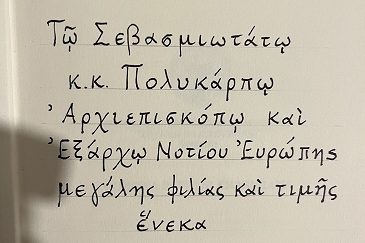 Τῷ Σεβασμιωτάτῳ
κ.κ. Πολυκάρπῳ
Ἀρχιεπισκόπῳ καὶ
Ἐξάρχῳ Νοτίου Ἐυρώπης
μεγάλης φιλίας καὶ τιμῆς
ἕνεκα